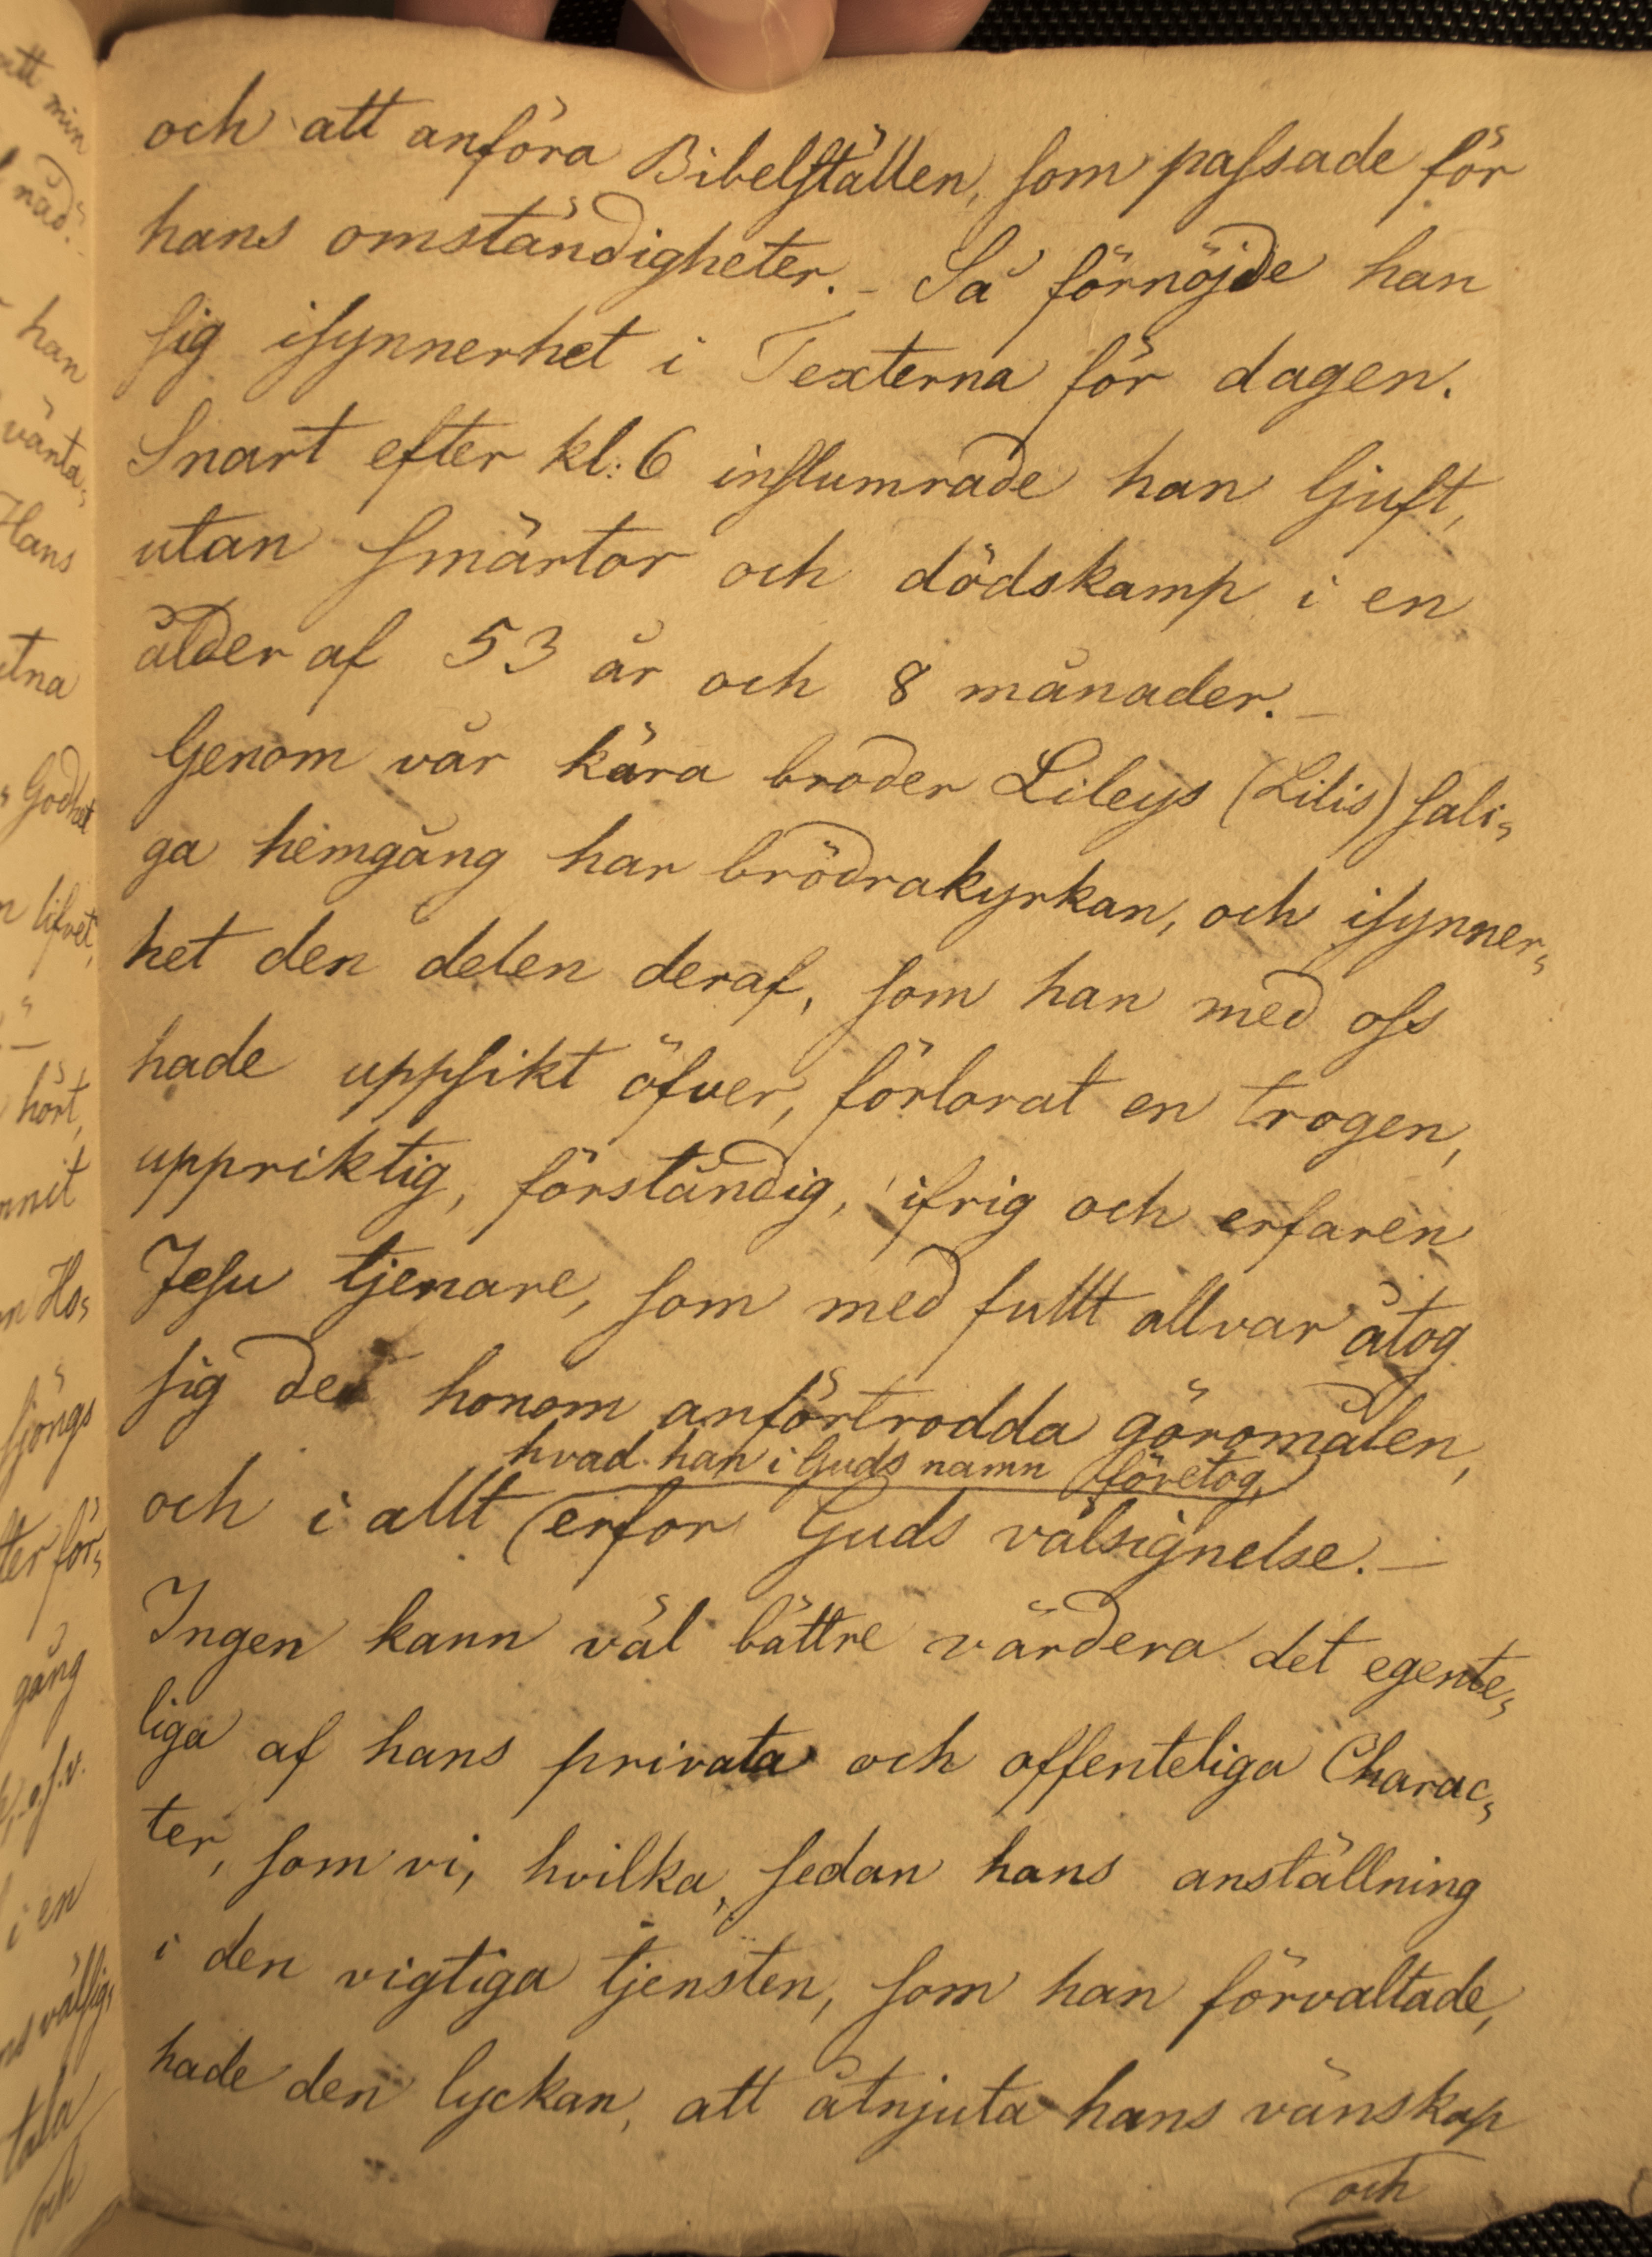 och att anföra Bibelställen, som passade för
hans omständigheter. - Så förnöjde han
sig isynnerhet i Texterna för dagen.
Snart efter kl: 6 inslumrade han ljuft,
utan smärtor och dödskamp i en
ålder af 53 år och 8 månader. -
Genom vår kära broder Lileys (Lilis) sali=
ga hemgång har brödrakyrkan, och isynner=
het den delen deraf, som han med oss
hade uppsikt öfver, förlorat en trogen,
uppriktig, förståndig, ifrig och erfaren
Jesu tjenare, som med fullt allvar åtog
sig de honom anförtrodda göromålen,
hvad han i Guds namn företog,
och i allt erfor Guds välsignelse. -
Ingen kann väl bättre värdera det egente=
liga af hans privata och offenteliga Charac=
ter, som vi, hvilka, sedan hans anställning
i den vigtiga tjensten, som han förvaltade,
hade den lyckan, att åtnjuta hans vänskap
och